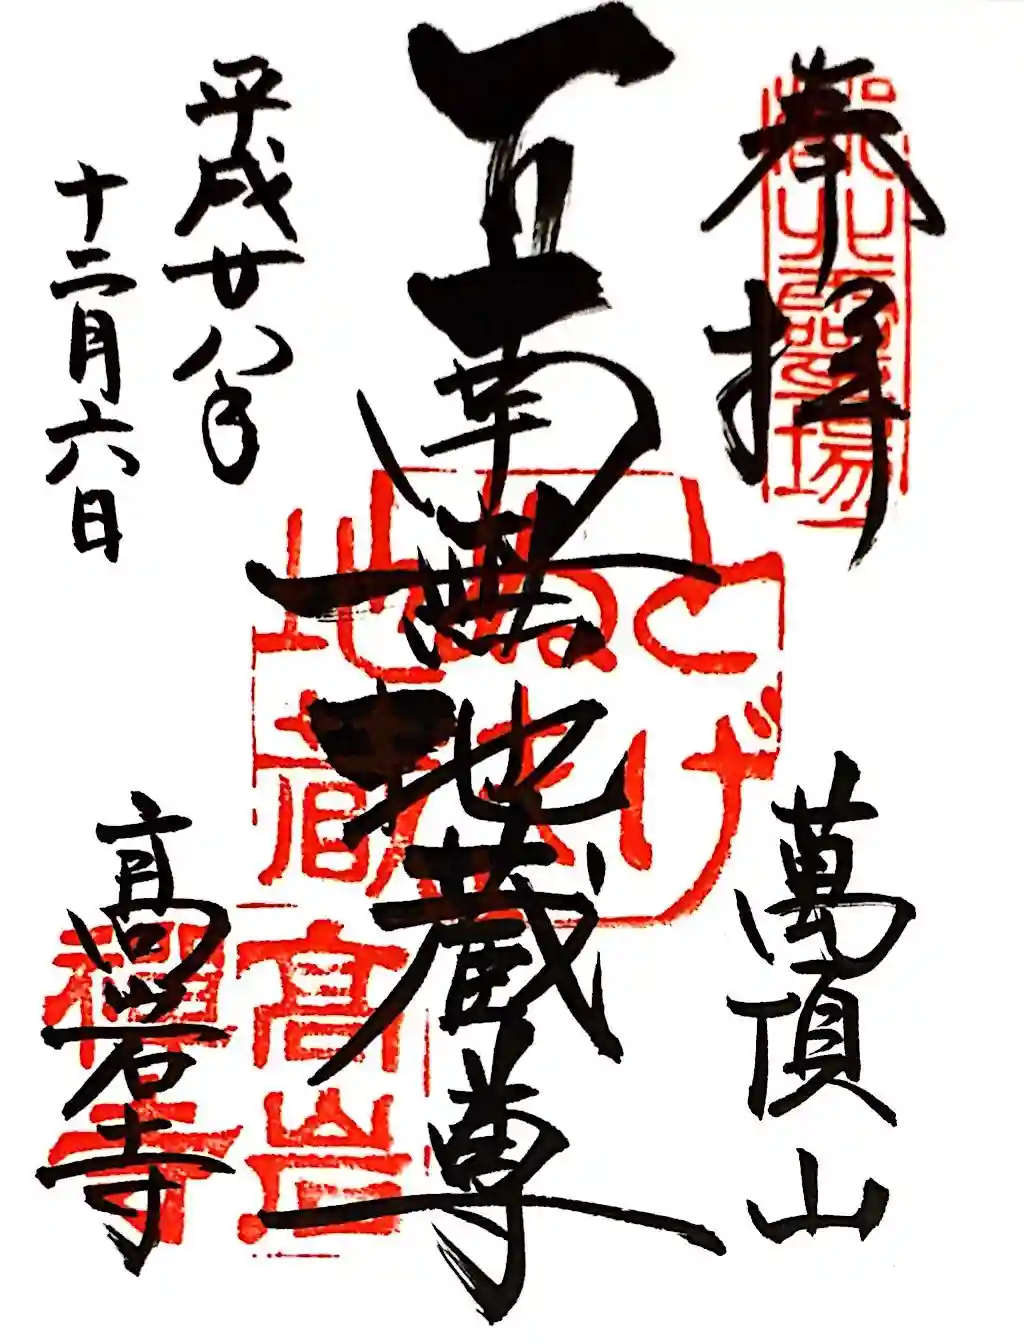 奉拝
霊場
萬頂山
南無地蔵尊
とげ
ぬき
地蔵
高岩
禪寺
平成廿八年
十二月六日
高岩寺